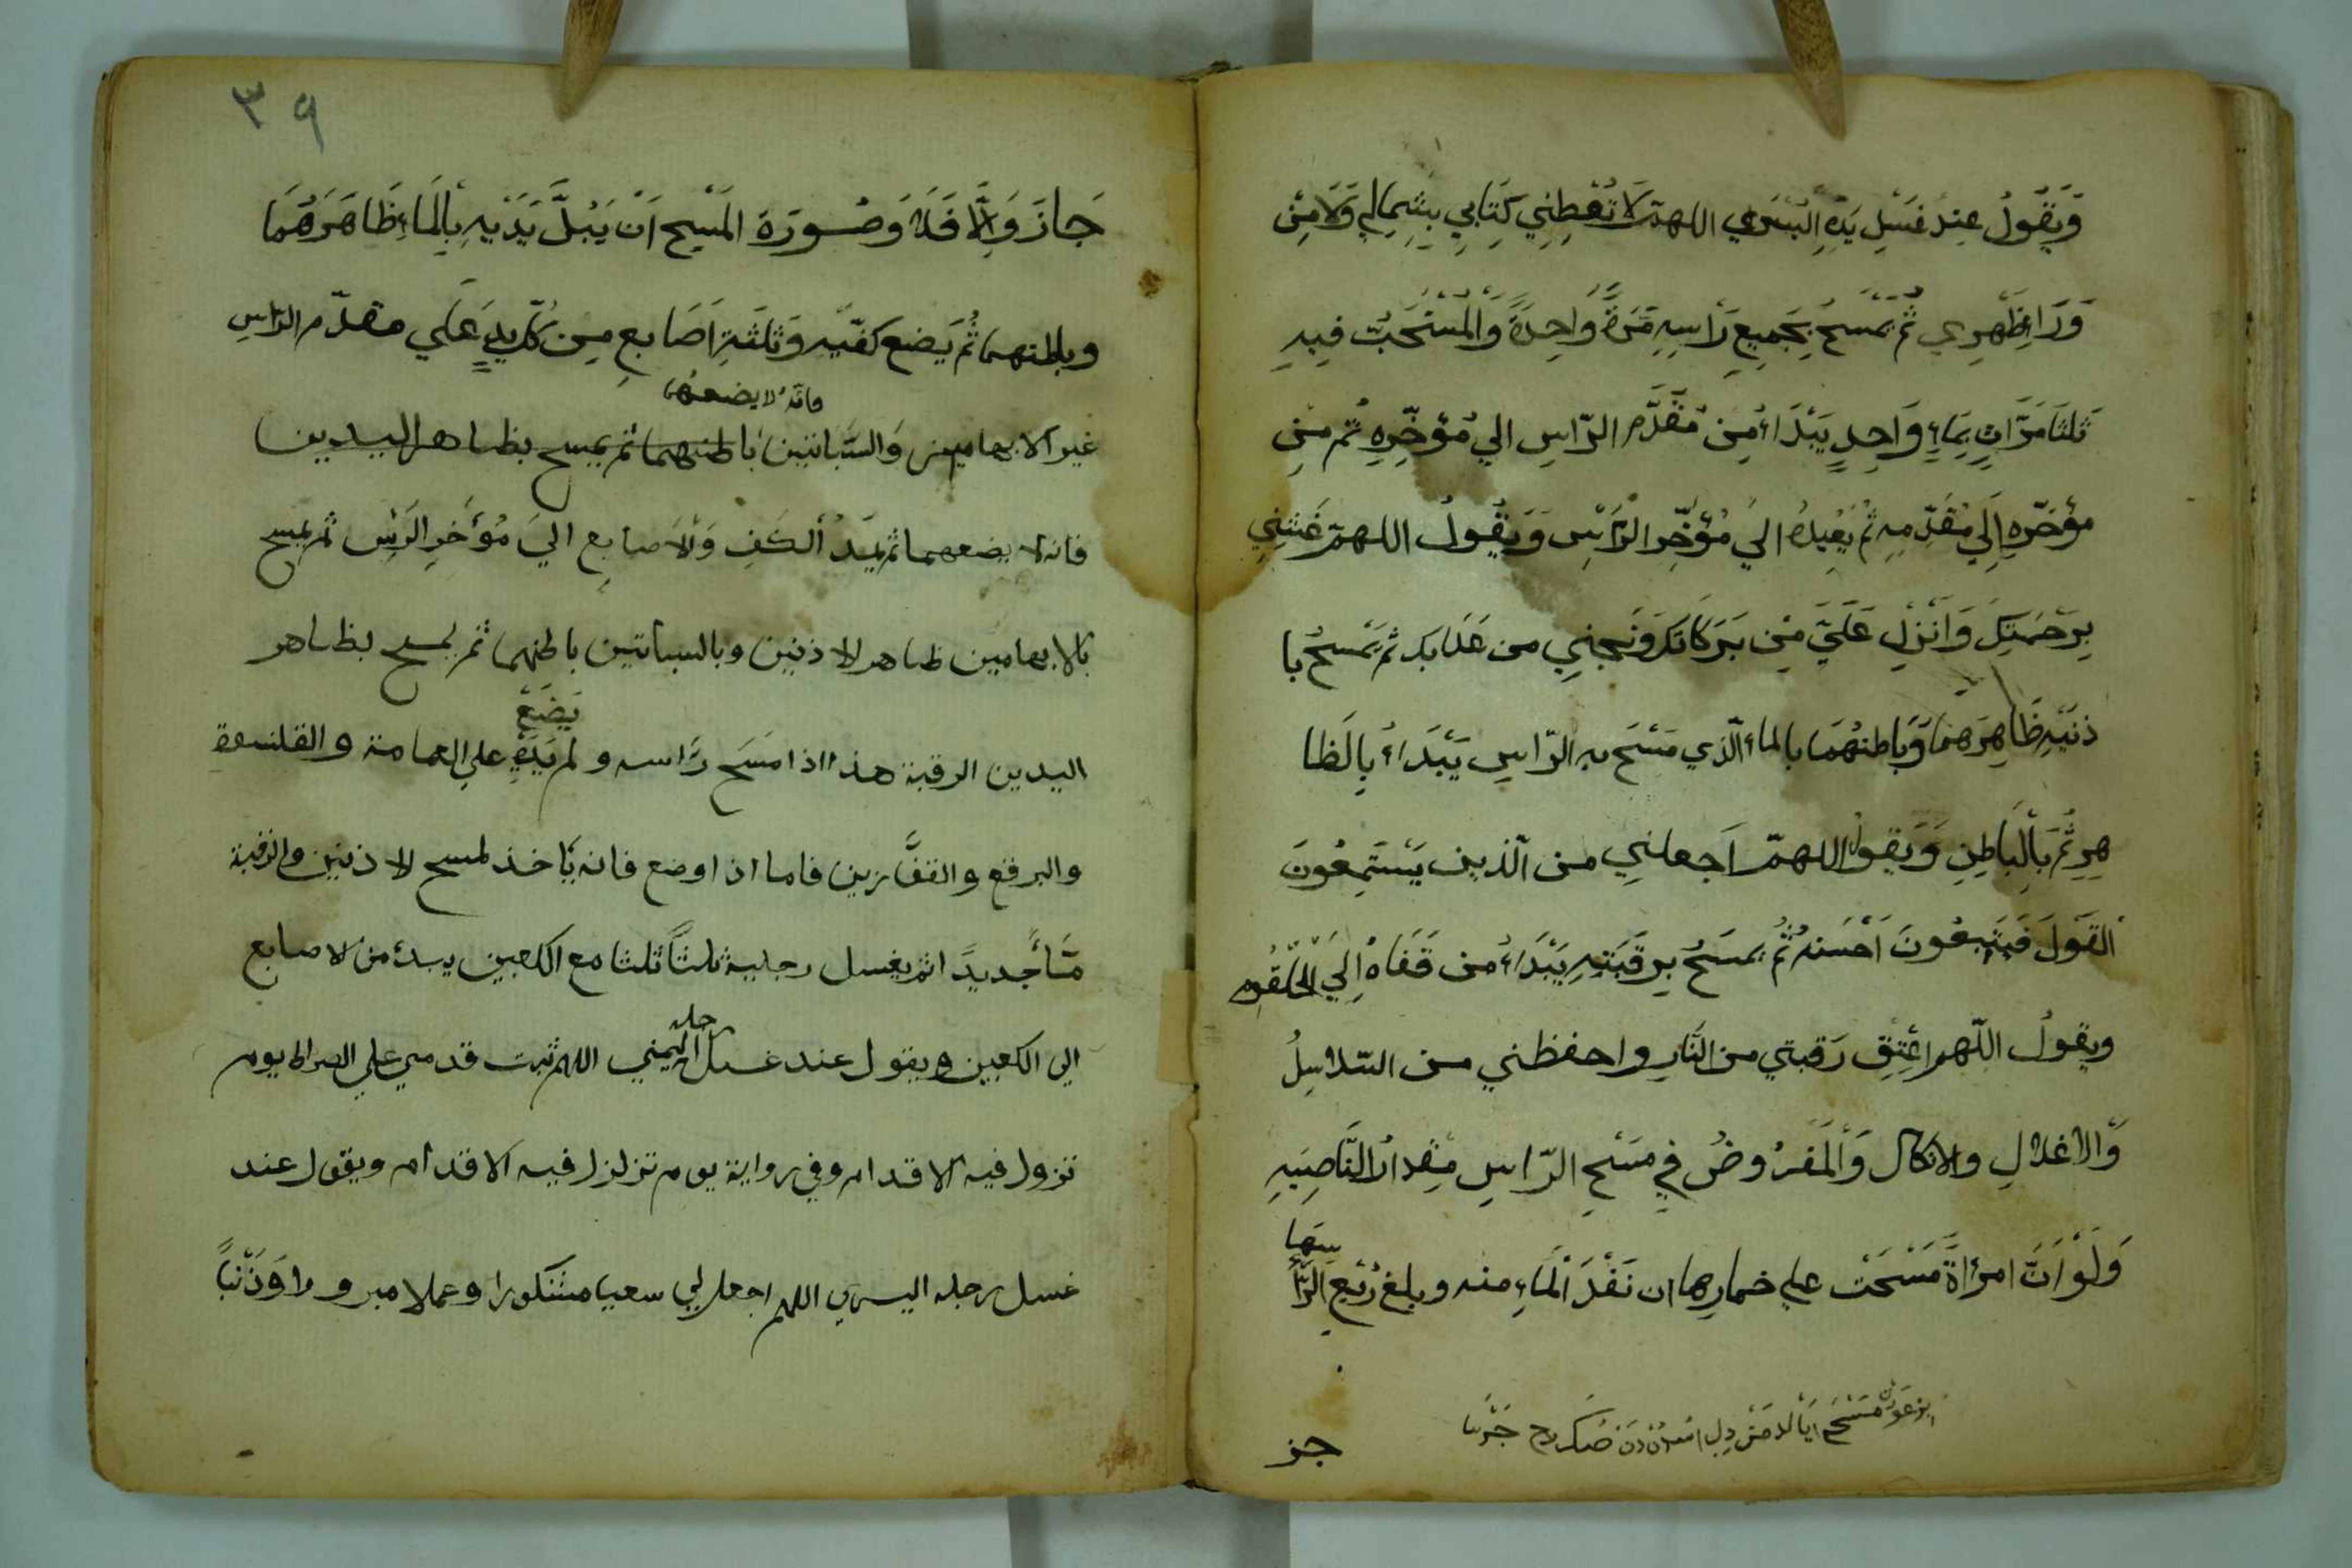 وَيَقُولُ عِنْدَ غَسْلِ يَدِهِ الْيُسْرَي اللهمّ لَا تُعْطِنِي كِتَابِي بِشِمَالِي وَلَا مِنْ
وَرَاءِ ظَهْرِي ثُمَّ يَمْسَحُ بِجَمِيعِ رَأْسِهِ مَرَّةً وَاحِدَةً وَالْمُسْتَحَبُّ فِيهِ
ثَلثَا مَرَّاتٍ بِمَاءٍ وَاحِدٍ يَبْدَاءُ مِنْ مُقَدَّمِ الرّاسِ الي مُؤَخِّرِهِ ثُم مِنْ
مؤخّرِهِ اِلَي مُقَدّمِهِ ثُمَّ يُعِيدُهُ الَي مُؤَخِّرِ الرَّاسِ وَيَقُولُ اللهمّ غَشِّنِي
بِرَحْمَتِكَ وَاَنْزِلْ عَلَيَّ مِنْ بَرَكَاتِكَ وَنَجِّنِي من عَذَابِكَ ثم يَمْسَحُ با
ذنَيْهِ ظَاهِرَهمَا وَبَاطنَهُمَا بالماء الّذي مَسَحَ به الرّاسِ يَبْدَاءُ بِالظا
هِرِ ثُمَّ بِالْبَاطِنِ وَيَقولُ اللهمّ اَجعلنِي من الّذين يَسْتَمِعُونَ
القَوْلَ فَيَتَّبِعُونَ اَحْسَنهُ ثُمَّ يمسَحُ بِرقَبَتِهِ يَبْدَاءُ من قَفَاهُ اِلَي الحُلْقُومِ
ويقولُ اللّهم اعْتِقْ رَقبتي من النَّارِ واحفظني من السّلاسِلُ
وَالاغلالِ والانكال وَالْمَفرُوضُ فِي مَسْحِ الرّاسِ مِقدارُ النَّاصِيَهِ
وَلَوْ اَنَّ امرَاةً مَسَحَتْ علي خمارِها ان نَفَذَ الْمَاءِ منه وبلغ رُبُعِ الرَّأْ
سِهَا
جز
٣٩
جَازَ وَاِلَّا فَلا وَصُورَةَ المَسْحِ اَنْ يَبُلَّ يَدَيْهِ بِالمَاءِ ظَاهَرَهُمَا
وباطنهما ثُمَّ يَضع كفّيْه وَثلثَةِ اَصَابِعِ مِن كُلِّ يدٍ عَلَي مقدّم الرّاسِ
فانّه لا يضعهما
غير الابهامين وَالسَّبَابَتَين باطنهما ثم يمسح بظاهر اليدين
فانه لا يضعهما ثم يَمدُّ الكَفِ وَالاَصابِعِ اليَ مُؤَخّرِ الرَّاْس ثم يمسح
بالابهامين ظاهر الاذنين وبالسبابتين باطنهما ثم يمسح بظاهر
يَضَعْ
اليدين الرقبة هذا اذا مَسَح رَاسه ولم يَدَهُ علي العمامة والقلنسوة
والبرقع والقفَّازين فاما اذا وضع فانه ياخذ لمسح الاذنين والرقبة
مَاءً جديدًا ثم يغسل رجليه ثلثًا ثلثا مع الكعبين يبدء من الاصابع
الي الكعبين ويقول عند غسل رجله اليمني اللهم ثبت قدمي علي الصراط يوم
تزول فيه الاقدام وفي رواية يوم تزلزل فيه الاقدام ويقول عند
غسل رجله اليسري اللهم اجعل لي سعيا مشكورا وعملا مبرورا وَذَنْبًا